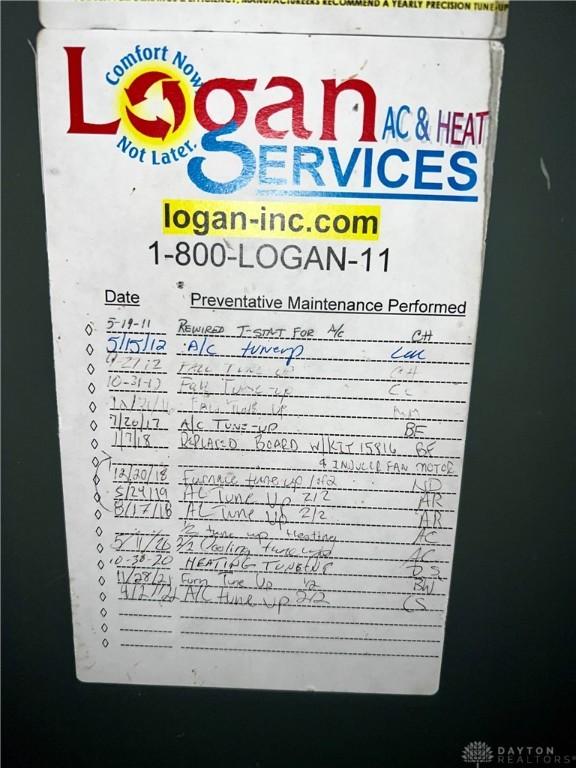 MANUFACTURERS RECOMMEND A YEARLY PRECISION TUNE-UP
Comfort Now
Not Later.
Logan AC & HEAT
SERVICES
logan-inc.com
1-800-LOGAN-11
Date Preventative Maintenance Performed
5-19-11 REWIRED T-STAT FOR A/C CH
5/15/12 A/C tuneup
FALL TUNE UP CH
10-31-13 Fall Tune-up CC
FALL TUNE UP
7/20/17 A/C TUNE-UP BF
1/7/18 REPLACED BOARD W/KIT 15816 BF
& INDUCER FAN MOTOR
12/20/18 Furnace tune up 1of2 ND
5/24/19 AC Tune Up 2/2 AR
8/17/18 AC Tune Up 2/2 AR
1/2 tune up Heating AC
5/11/20 2/2 Cooling tune up AC
10-30-20 HEATING TUNEUP DS
11/28/21 Furn Tune Up 1/2 BW
A/C tune up 2/2 CS
DAYTON
REALTORS®